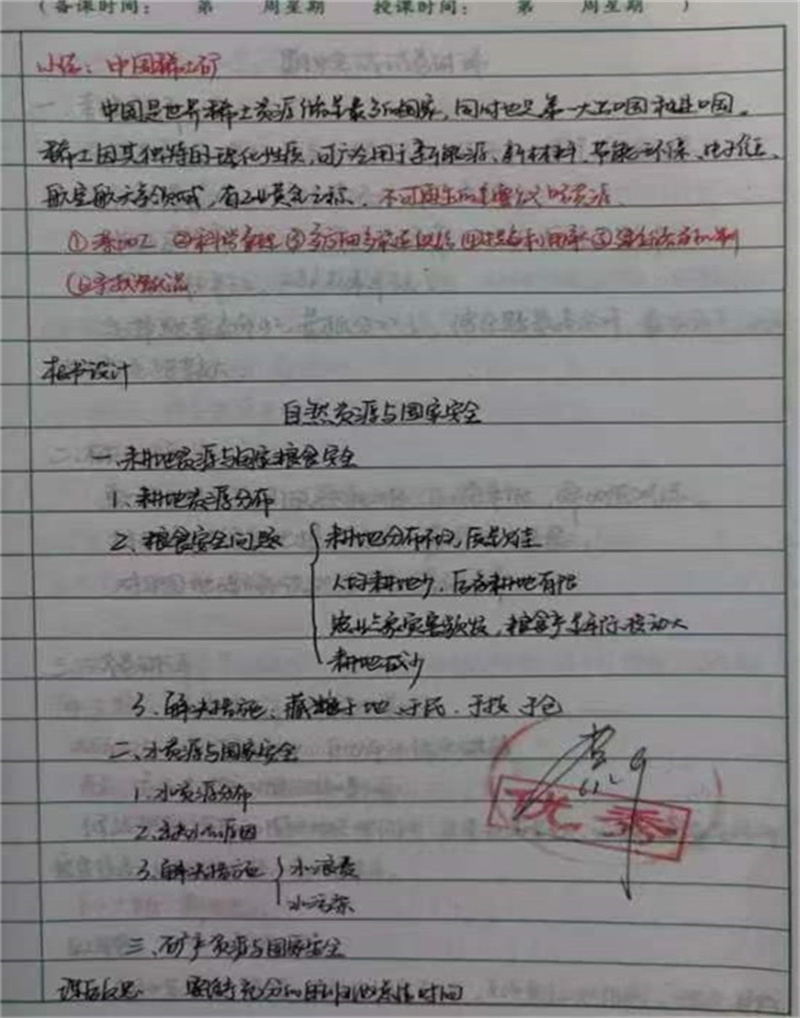 (备课时间: 第 周星期 授课时间: 第 周星期 )
小结: 中国稀土矿
中国是世界稀土资源储量最多的国家, 同时也是第一大出口国和进口国。
稀土因其独特的理化性质, 可广泛用于新能源、新材料、节能环保、电子信息、
航空航天等领域, 有工业黄金之称。不可再生的重要战略资源
①深加工 ②科学管理 ③ ④提高利用率 ⑤
⑥寻找替代品
板书设计
自然资源与国家安全
一、耕地资源与国家粮食安全
1、耕地资源分布
2、粮食安全问题
耕地分布不均, 质量欠佳
人均耕地少, 后备耕地有限
农业气象灾害频发, 粮食产量年际波动大
耕地减少
3、解决措施: 藏粮于地、于民、于技、于仓
二、水资源与国家安全
1、水资源分布
2、缺水的原因
3、解决措施
水浪费
水污染
三、矿产资源与国家安全
优秀
课后反思: 时间